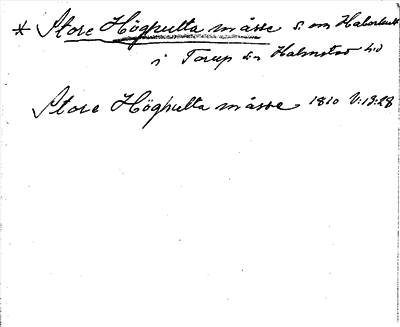 * Store Höghulta måsse s. om Haborhult
i Torup sn Halmstad hd
Store Höghulta måsse 1810 V:13:28